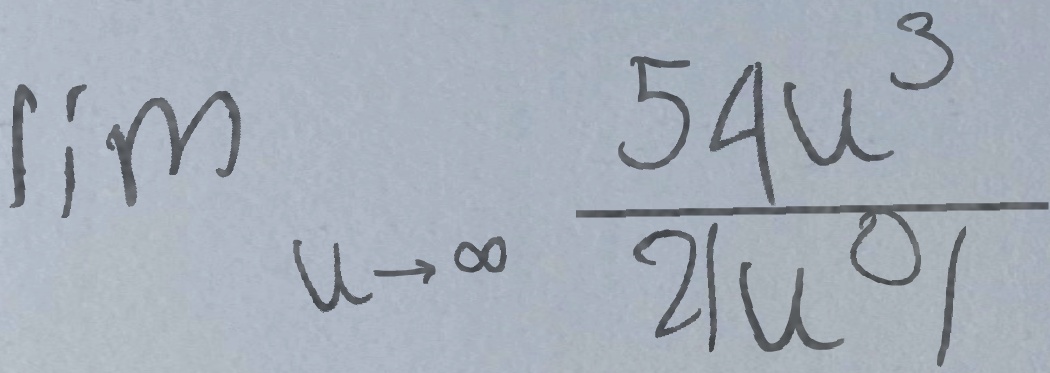 \lim_{u \to \infty} \frac{54u^3}{2|u^0|}